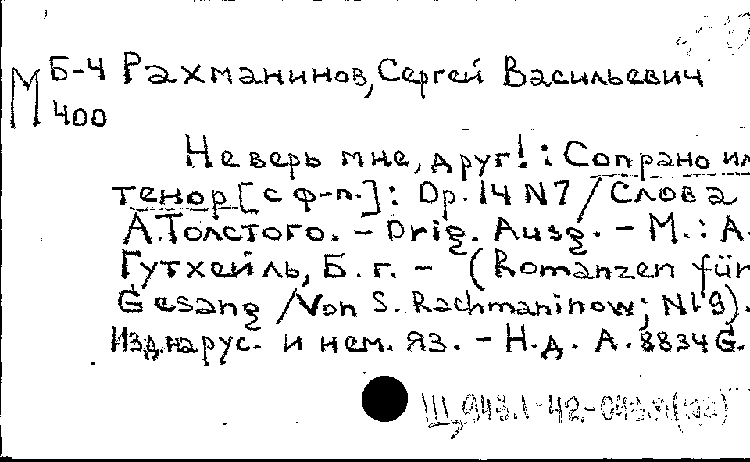 М Б-4 Рахманинов, Сергей Васильевич
400
Не верь мне, друг! : Сопрано ил
тенор [с ф-п.] : Op. 14 N 7 / Слова
А.Толстого. - Orig. Ausg. - М. : А.
Гутхейль, Б. г. - (Romanzen für
Gesang / Von S. Rachmaninow; N 19).
Изд. на рус. и нем. яз. - Н.д. А. 8834 G.